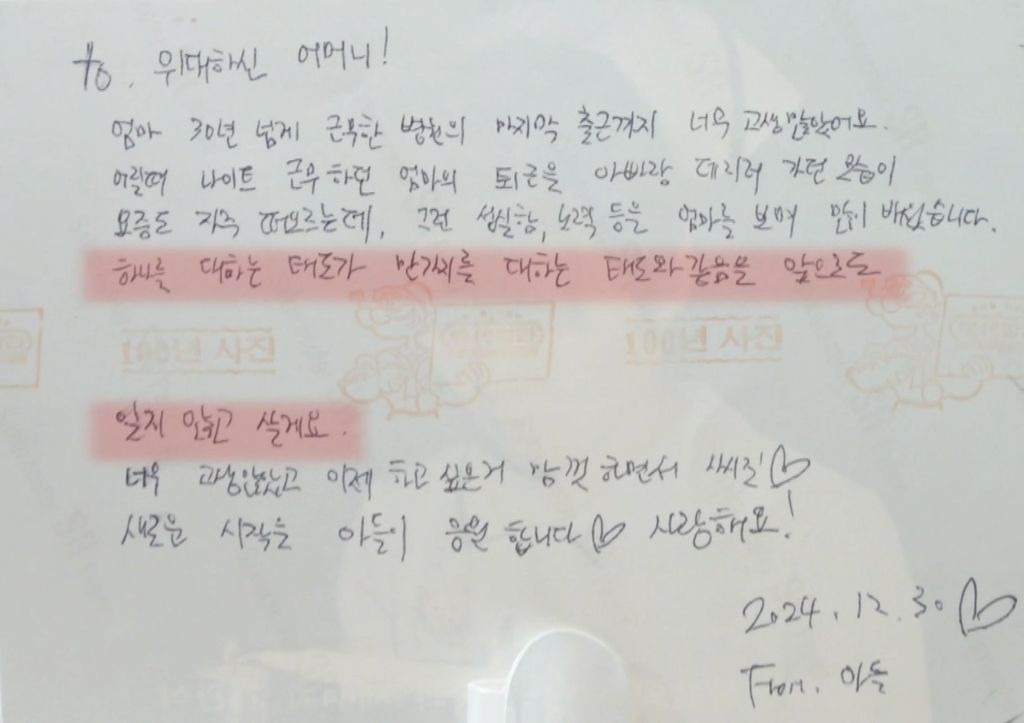 to. 위대하신 어머니!
엄마 30년 넘게 근무한 병원의 마지막 출근까지 너무 고생많았어요.
어릴때 나이트 근무하던 엄마의 퇴근을 아빠랑 데리러 가던 모습이
요즘도 자주 떠오르는데, 그런 성실함, 노력 등을 엄마를 보며 많이 배웠습니다.
하나를 대하는 태도가 만가지를 대하는 태도와 같음을 앞으로도
1001년 사진 1001년 사진
잊지 않고 살게요.
너무 고생많았고 이제 하고 싶은거 맘껏 하면서
새로운 시작을 아들이 응원 합니다♡ 사랑해요!
2024.12.30♡
From. 아들